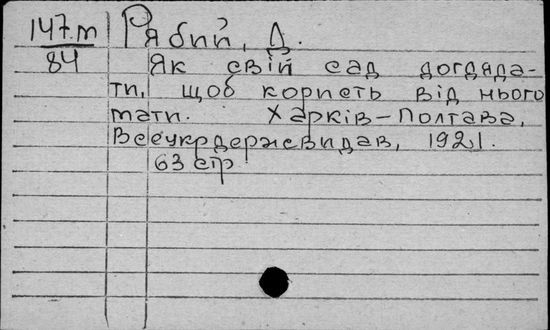 147.m Рябий, Д.
84 Як свій сад догляда-
ти, щоб користь від нього
мати. Харків-Полтава,
Всеукрдержевидав, 1921.
63 стр